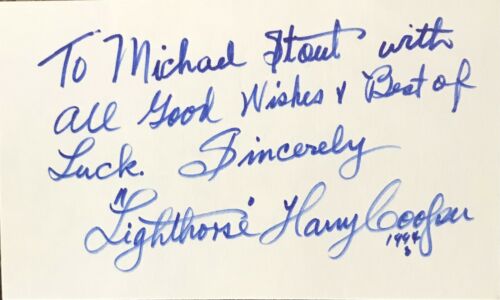 To Michael Stout with
all Good Wishes & Best of
Luck. Sincerely
"Lighthorse" Harry Cooper
1994